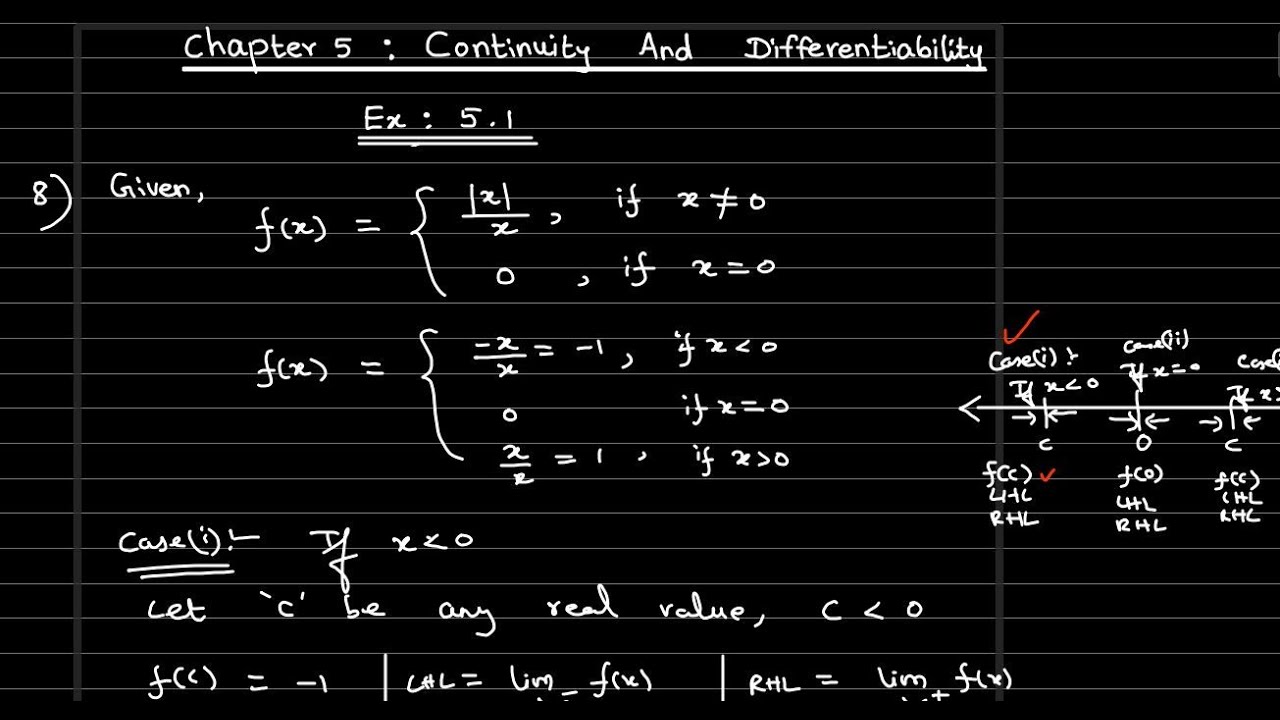 Chapter 5 : Continuity And Differentiability
Ex : 5.1
8) Given,
f(x) = { |x|/x , if x ≠ 0
0 , if x = 0
f(x) = { -x/x = -1 , if x < 0
0 if x = 0
x/x = 1 , if x > 0
Case(i):- If x < 0
Let 'c' be any real value, c < 0
f(c) = -1 | LHL = lim f(x) | RHL = lim f(x)
Case(i):-
If x < 0
c
f(c)
LHL
RHL
Case(ii)
If x = 0
0
f(0)
LHL
RHL
If x >
c
f(c)
LHL
RHL